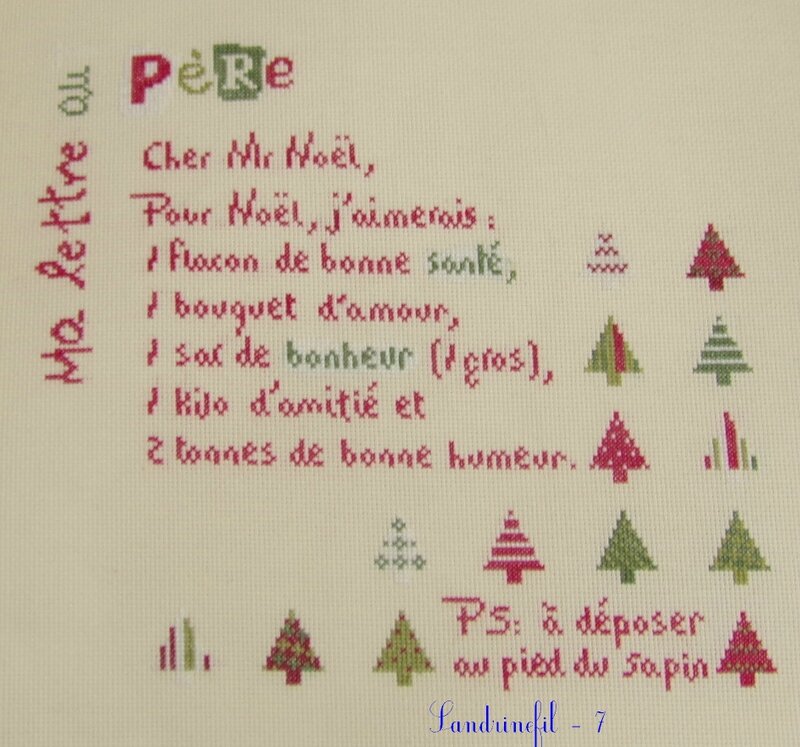 Ma lettre au
PèRe
Cher Mr Noël,
Pour Noël, j'aimerais :
1 flacon de bonne santé,
1 bouquet d'amour,
1 sac de bonheur (1 gros),
1 kilo d'amitié et
2 tonnes de bonne humeur.
PS: à déposer
au pied du sapin
Sandrinefil - 7